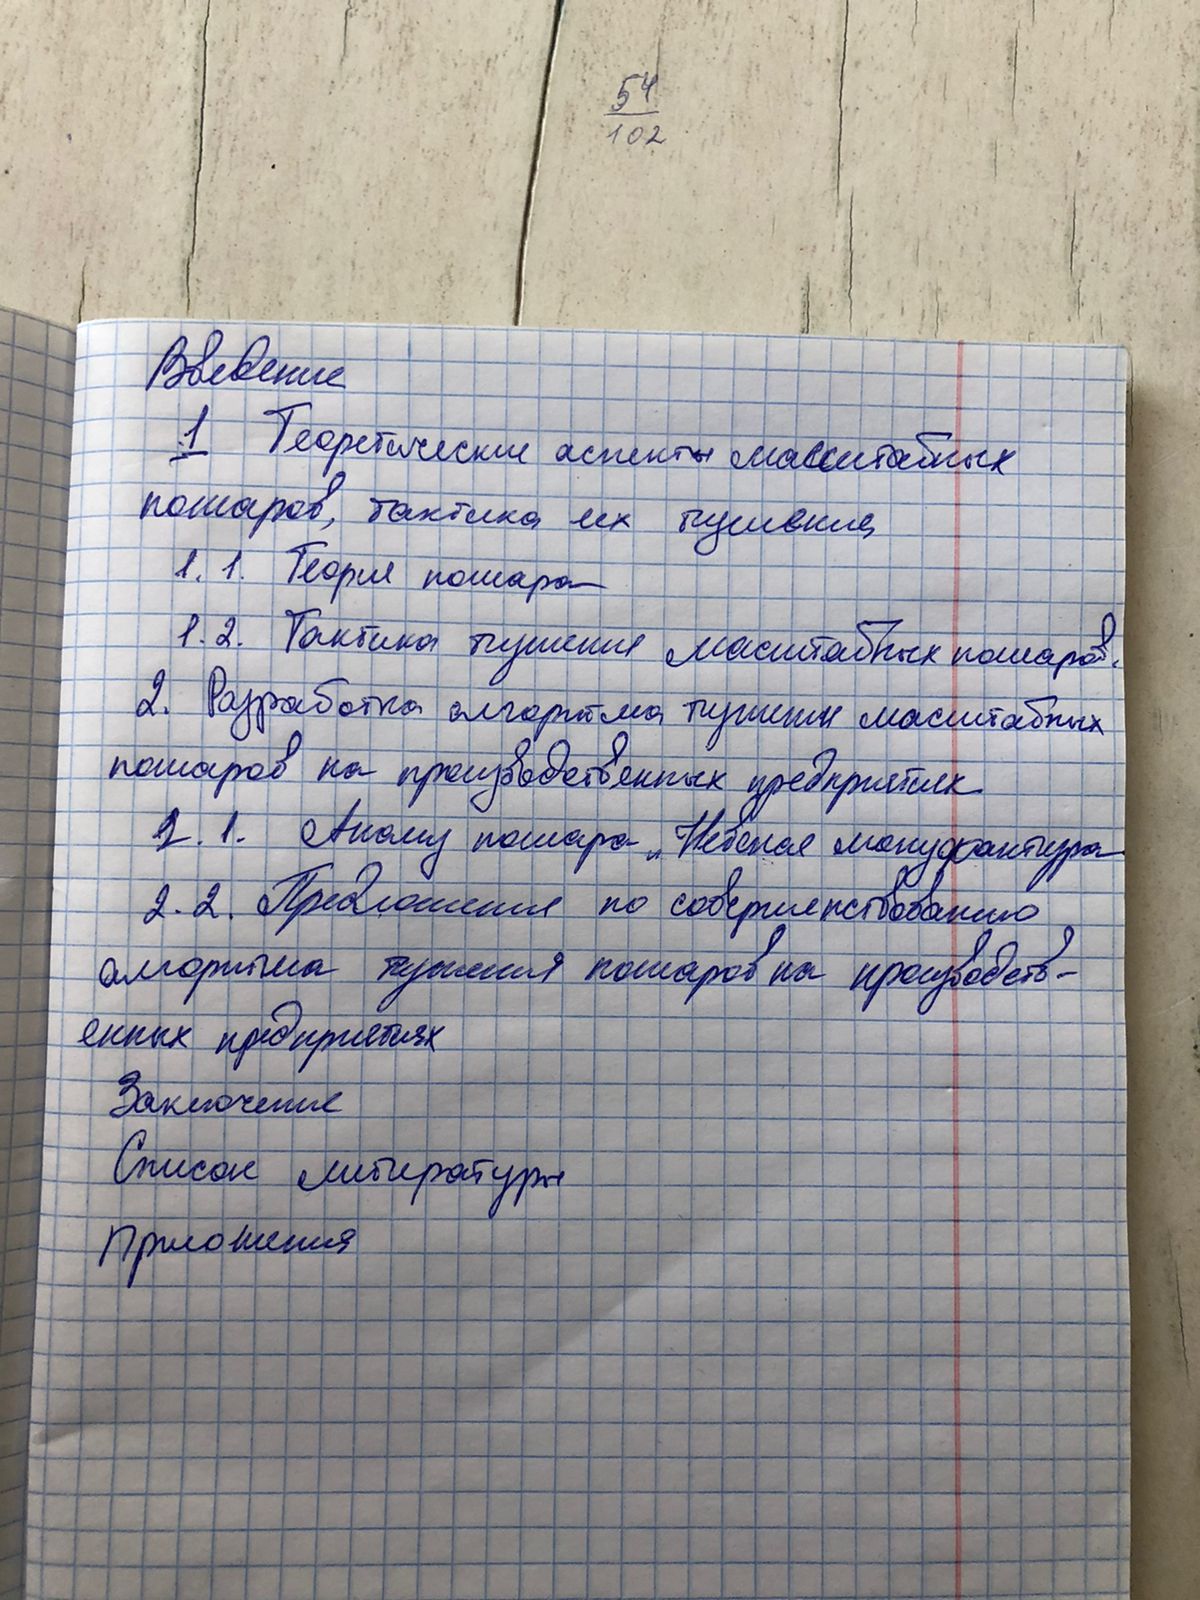 54
102
Введение
1 Теоретические аспекты масштабных
пожаров, тактика их тушения
1.1. Теория пожара
1.2. Тактика тушения масштабных пожаров.
2. Разработка алгоритма тушения масштабных
пожаров на производственных предприятиях
2.1. Анализ пожара „Невская мануфактура
2.2. Предложения по совершенствованию
алгоритма тушения пожаров на производств-
енных предприятиях
Заключение
Список литературы
Приложения